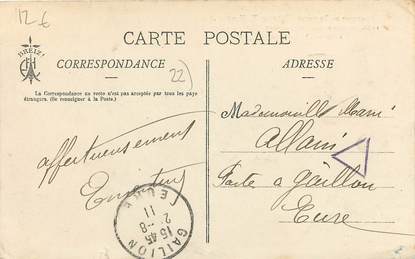 12 €
CARTE POSTALE
BREIZ
CORRESPONDANCE
22)
ADRESSE
La Correspondance au recto n'est pas acceptée par tous les pays
étrangers. (Se renseigner à la Poste.)
Mademoiselle
Allain
Poste a Gaillon
Eure
affectueusement
GAILLON
15-45
2 -8
11
EURE